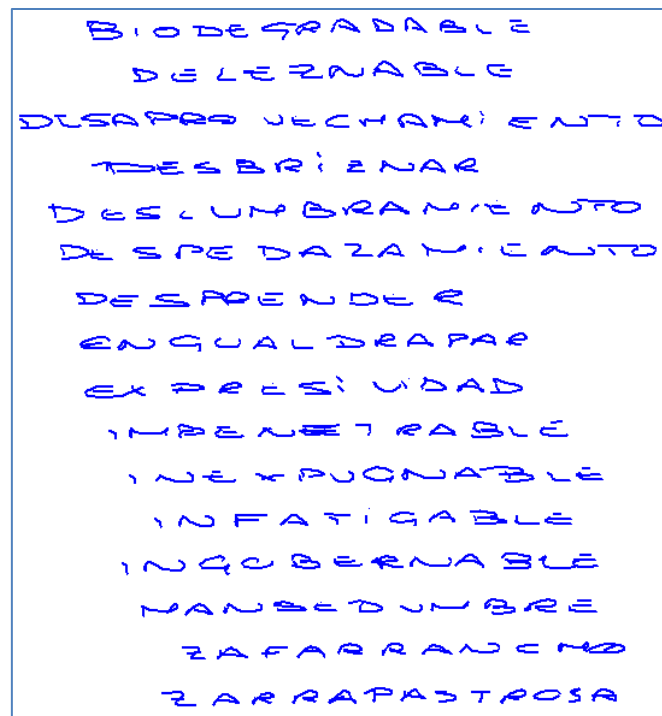 BIODEGRADABLE
DELEZNABLE
DESAPROVECHAMIENTO
DESBRIZNAR
DESLUMBRAMIENTO
DESPEDAZAMIENTO
DESPRENDER
ENGUALDRAPAR
EXPRESIVIDAD
IMPENETRABLE
INEXPUGNABLE
INFATIGABLE
INGOBERNABLE
MANSEDUMBRE
ZAFARRANCHO
ZARRAPASTROSA